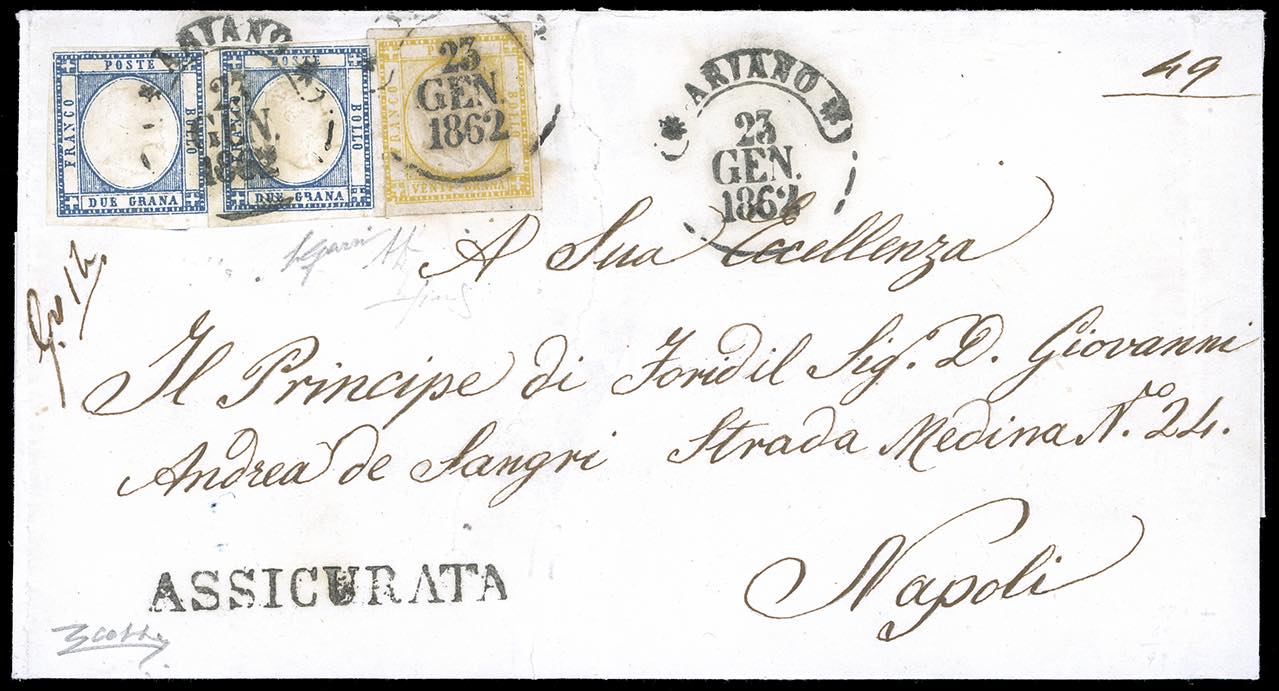 POSTE
FRANCO
BOLLO
DUE GRANA
POSTE
FRANCO
BOLLO
DUE GRANA
FRANCO
BOLLO
VENTI GRANA
ARIANO
23
GEN.
1862
23
GEN.
1862
ARIANO
23
GEN.
1862
49
A Sua Eccellenza
Il Principe di Foridil Sig. D. Giovanni
Andrea de Sangri Strada Medina N.º 24.
Napoli
ASSICURATA